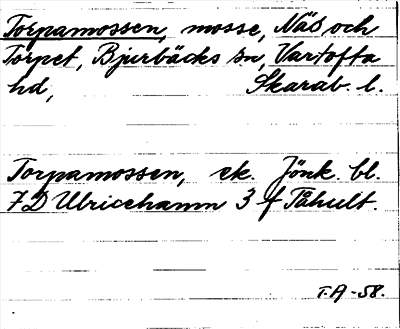 Torpamossen, mosse, Näs och
Torpet, Bjurbäcks sn, Vartofta
hd, Skarab. l.
Torpamossen, ek. Jönk. bl.
7D Ulricehamn 3 f Tåhult.
T.A-58.